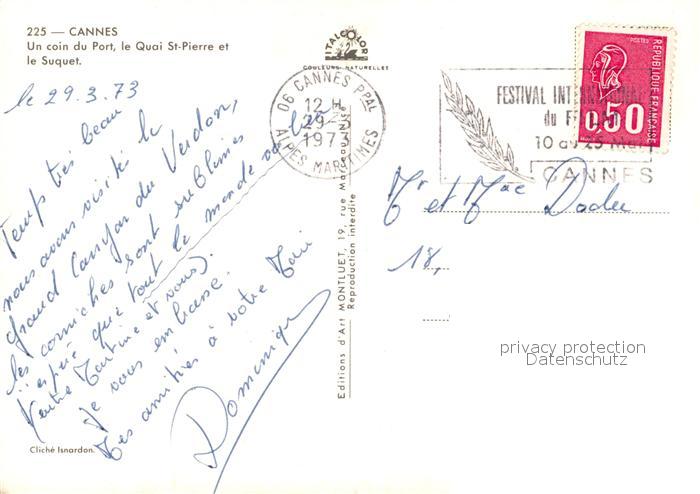 225 — CANNES
Un coin du Port, le Quai St-Pierre et
le Suquet.
ITALCOLOR
COULEURS NATURELLES
le 29.3.73
Temps très beau
nous avons visité le
grand Canyon du Verdon,
les corniches sont sublimes
j'espère que tout le monde va bien
(entre Martine et vous).
Je vous embrasse.
Mes amitiés à votre Mari
Dominique
Cliché Isnardon.
Editions d'Art MONTLUET, 19, rue Marceau, Nice
Reproduction interdite
06 CANNES PPAL
12 H
29-3
1973
ALPES MARITIMES
FESTIVAL INTERNATIONAL
du FILM
10 au 25 Mai
CANNES
REPUBLIQUE FRANÇAISE
POSTES
0,50
Mr et Mme Dadu
18,
privacy protection
Datenschutz